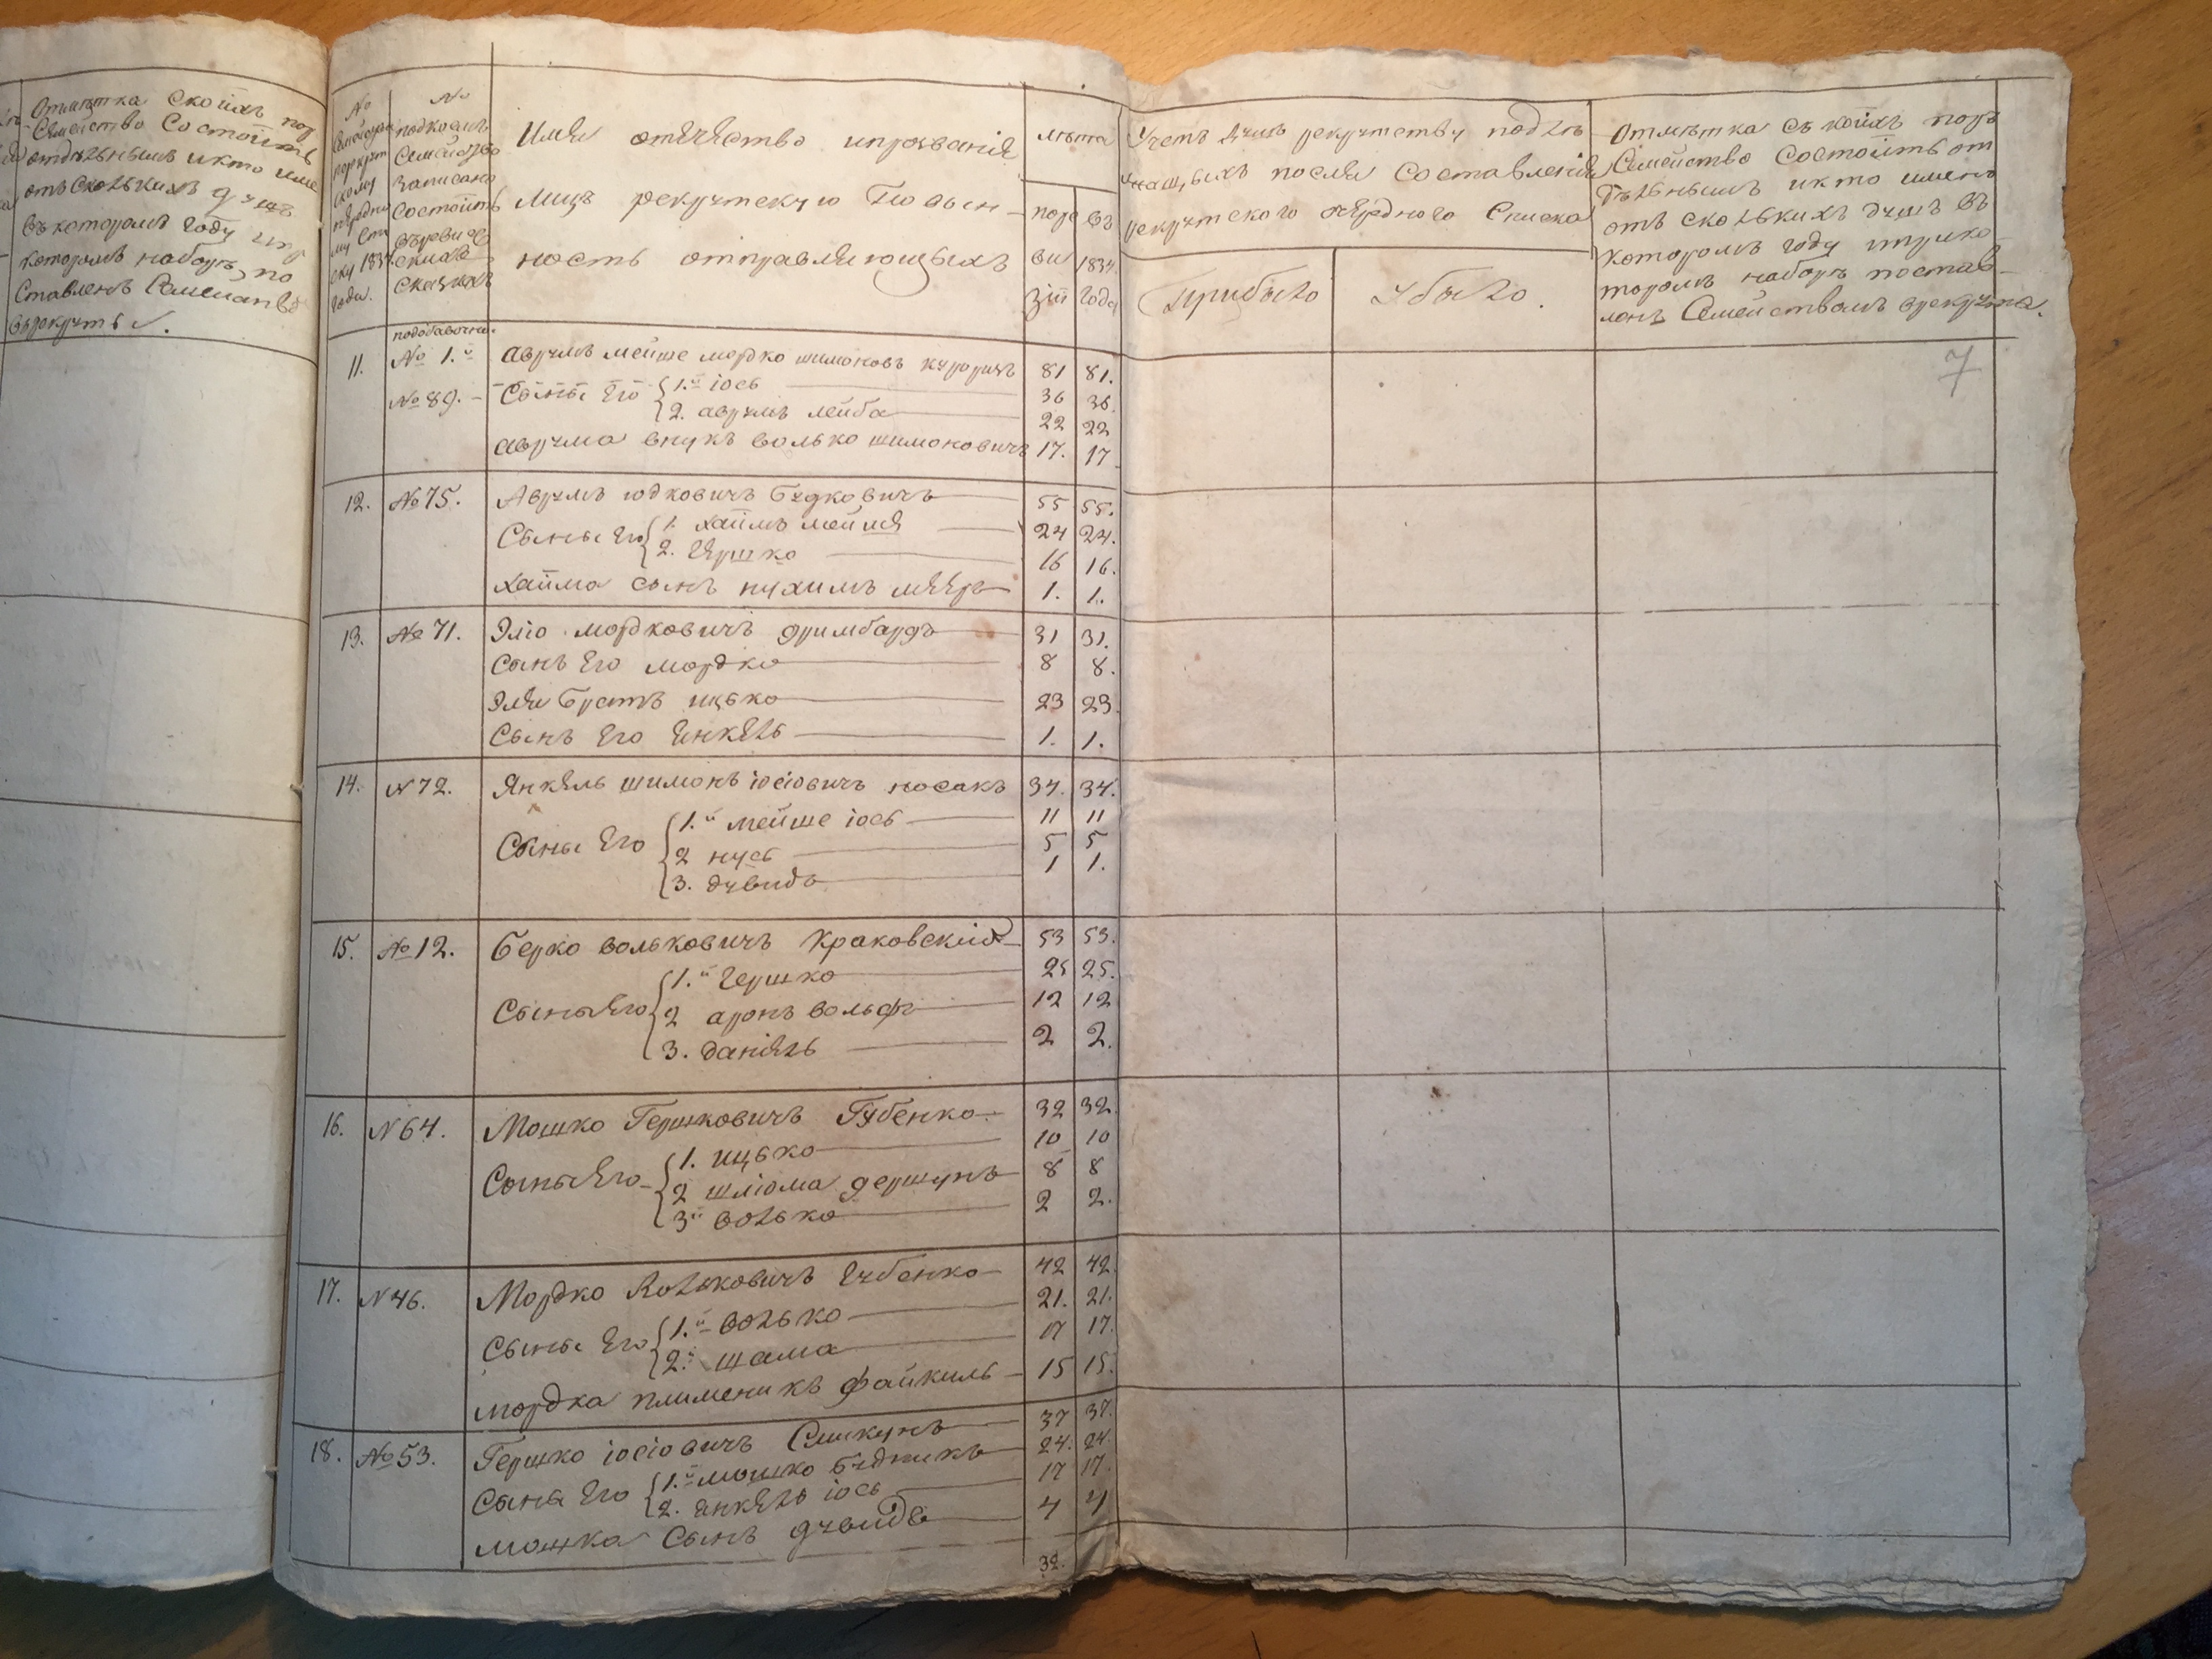 Отмѣтка скоихъ пор
Семейство Состоитъ
отдѣльнымъ икто име
отъ сколькихъ душъ
въ которомъ году ипр
которомъ наборѣ по
ставленъ Семейство
въ рекруты.
№
Семейства
по рекрут
скому
очередно
му спи
ску 1834
года.
№
подкоимъ
Семейство
Записано
Состоитъ
въ ревиз
скихъ
сказкахъ
Имя отечество ипрозваніе
лицъ рекрутскую Повин-
ность отправляющихъ
лѣта
поре
ви
зіи
въ
1834.
года
Учетъ душъ рекрутству подле
жащихъ после Составленія
рекрутского очередного Списка
Прибыло
убыло.
Отмѣтка съ коихъ поръ
Семейство Состоитъ от
дѣльнымъ икто именно
отъ сколькихъ душъ въ
которомъ году иприко
торомъ наборѣ постав-
ленъ Семействомъ врекрута.
7
подобавочни.
11. № 1.й Аврумъ мейше мордко шимоновъ 81 81.
№ 89. - Сыны Его 1.й іось 36 36.
2. аврумъ лейба 22 22
аврума внукъ волько шимоновичъ 17. 17
12. № 75. Аврумъ юдковичъ Будковичъ 55 55.
Сыны Его 1. хаймъ мейше 24 24.
2. Гершко 16 16.
хайма сынъ нухимъ меер 1. 1.
13. № 71. Элю мордковичъ дримбардъ 31 31.
сынъ Его мордко 8 8.
Эли братъ ицько 23 23.
Сынъ Его Янкель 1. 1.
14. N 72. Янкель шимонъ іосіовичъ носакъ 34. 34.
Сыны Его 1.й мейше іось 11 11
2 нусь 5 5
3. дувидъ 1 1.
15. № 12. Берко вольковичъ Краковскій 53 53.
1.й Гершко 25 25.
Сыны Его 2 аронъ вольфъ 12 12
3. даніель 2 2.
16. N 64. Мошко Гершковичъ Губенко 32 32.
1. ицько 10 10
Сыны Его 2 шліома гершунъ 8 8
3й волько 2 2.
17. N 46. Мордко Вольковичъ Губенко 42 42.
Сыны Его 1.й волько 21. 21.
2.й шама 17 17.
мордка племеникъ файкиль 15 15.
18. № 53. Гершко іосіовичъ 37 37.
Сыны Его 1.й мошко будникъ 24. 24.
2. Янкель іось 17 17.
мошка Сынъ дувидъ 4 4
32.